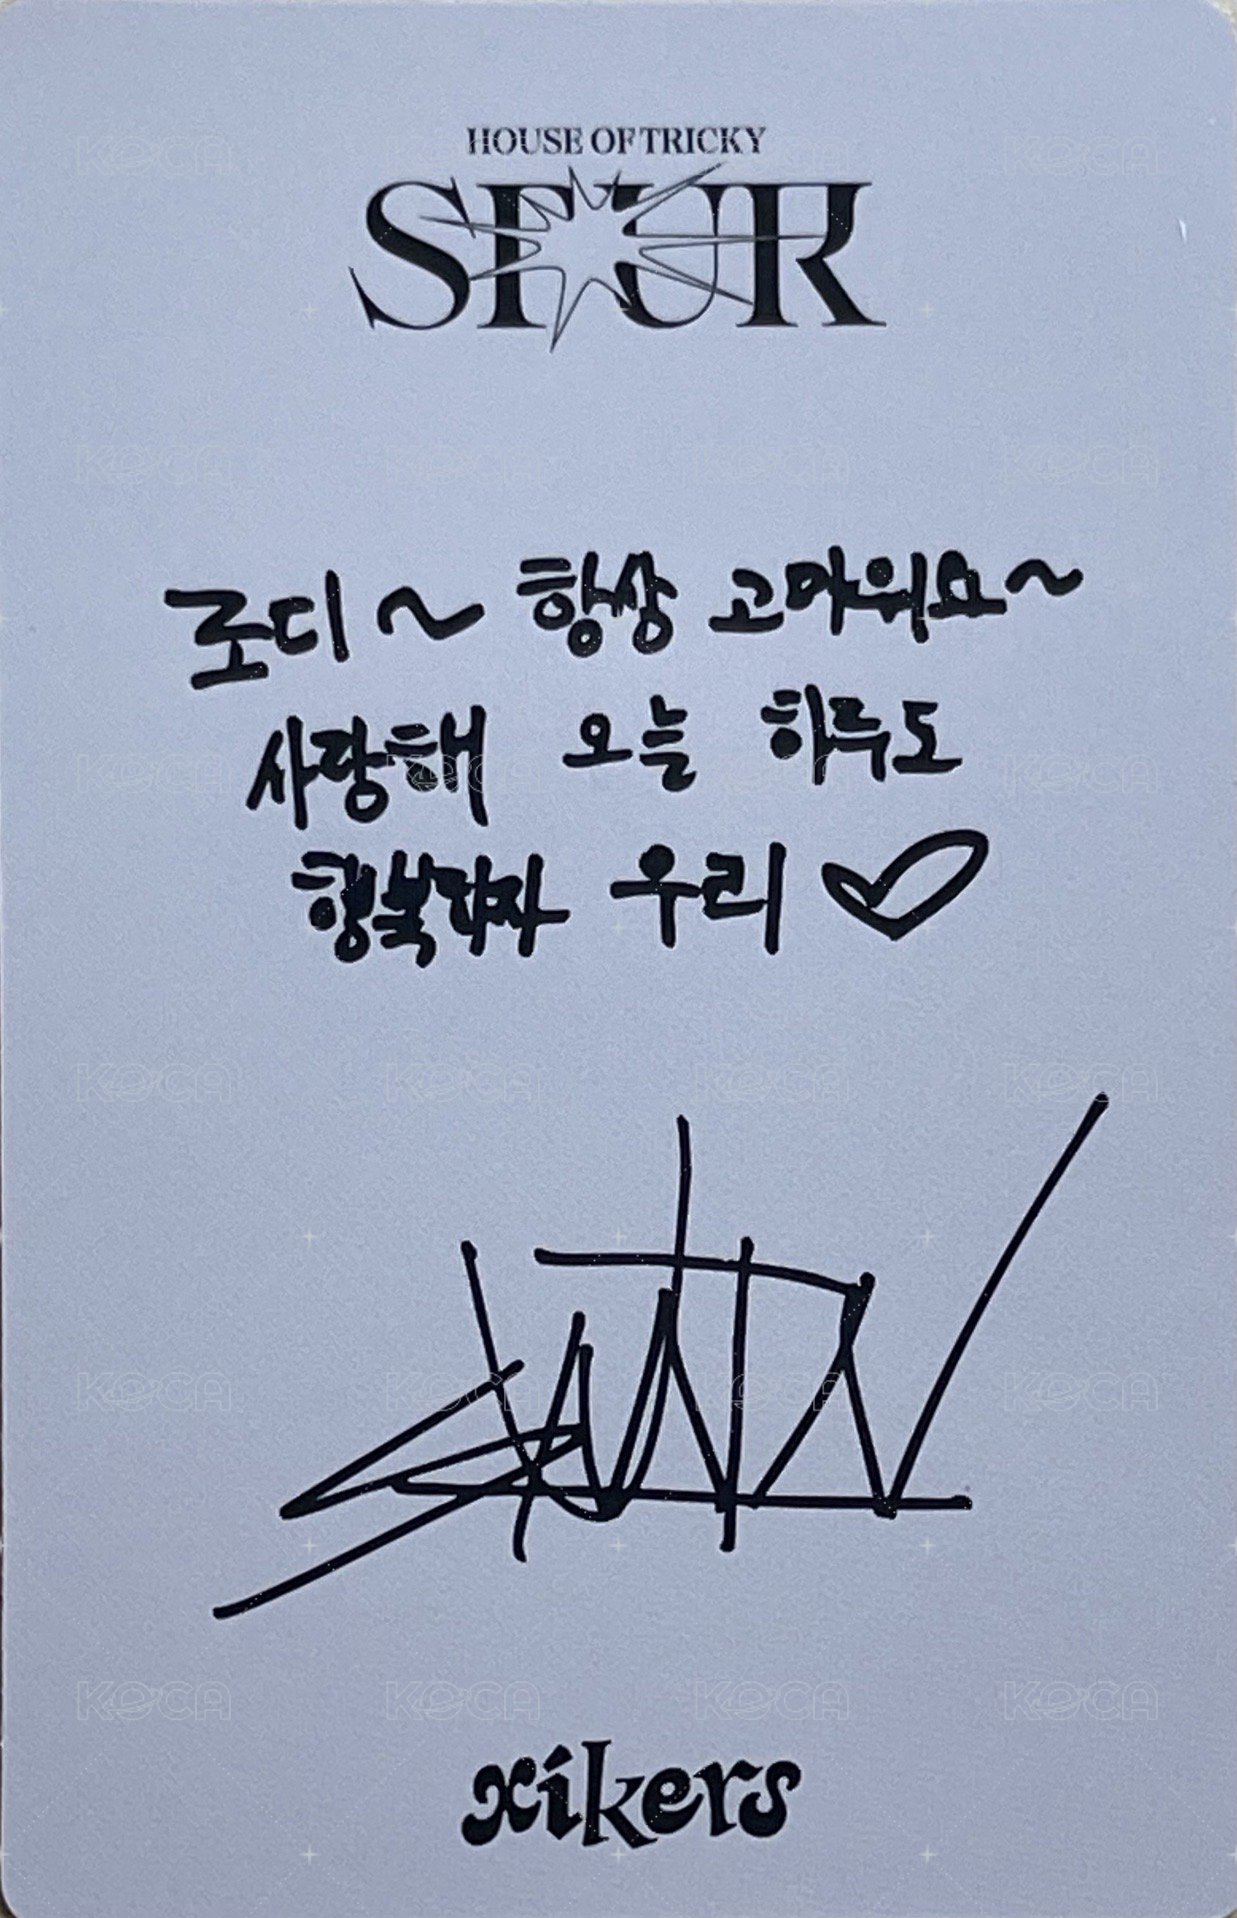 HOUSE OF TRICKY
SPUR
로디~ 항상 고마워요~
사랑해 오늘 하루도
행복하자 우리 ♡
xikers
KOCA